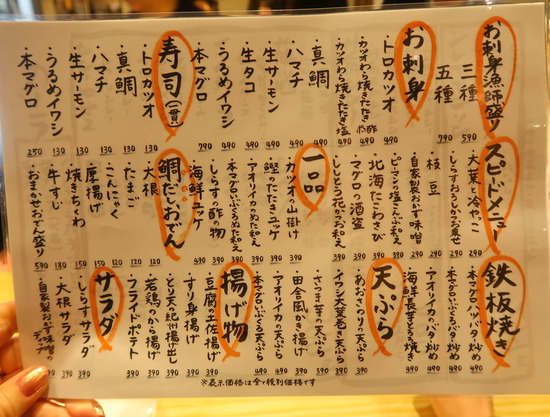 お刺身漁師盛り
三種 590
五種 790
お刺身
カツオわら焼きたたきポン酢 490
カツオわら焼きたたき塩 490
真鯛 490
ハマチ 490
生サーモン 490
生タコ 490
うるめイワシ 490
本マグロ 790
寿司(一貫)
トロカツオ 130
真鯛 130
ハマチ 130
生サーモン 130
うるめイワシ 130
本マグロ 250
スピードメニュー
大葉と冷やっこ
しらすおろしポン酢お見せ
枝豆
自家製おかず味噌
ピーマンの塩こんぶ和え
北海たこわさび
マグロの酒盗
ししとう花かつお和え
一品
カツオの山掛け
鰹のたたきユッケ
アオリイカのめた和え
本マグロいぶくろぬた和え
しらすの酢の物
海鮮ユッケ 490
鯛だしおでん
大根
たまご 120
こんにゃく 120
厚揚げ 150
焼きちくわ 150
牛すじ 180
おまかせおでん盛り 590
鉄板焼き
本マグロハツバタ炒め
本マグロいぶくろバタ炒め
アオリイカのバタ炒め
海鮮長芋とろろ焼き
天ぷら
あおさのりの天ぷら
イワシ大葉巻き天ぷら
さつま芋の天ぷら
田舎風かき揚げ
アオリイカの天ぷら
本マグロいぶくろ天ぷら
揚げ物
豆腐の土佐揚げ 390
すり身揚げ 390
とり天紀州梅揚げ出し
若鶏のから揚げ 390
フライドポテト 390
サラダ
しらすサラダ 390
大根サラダ 390
自家製おかず味噌のディップ 390
※表示価格は全て税別価格です